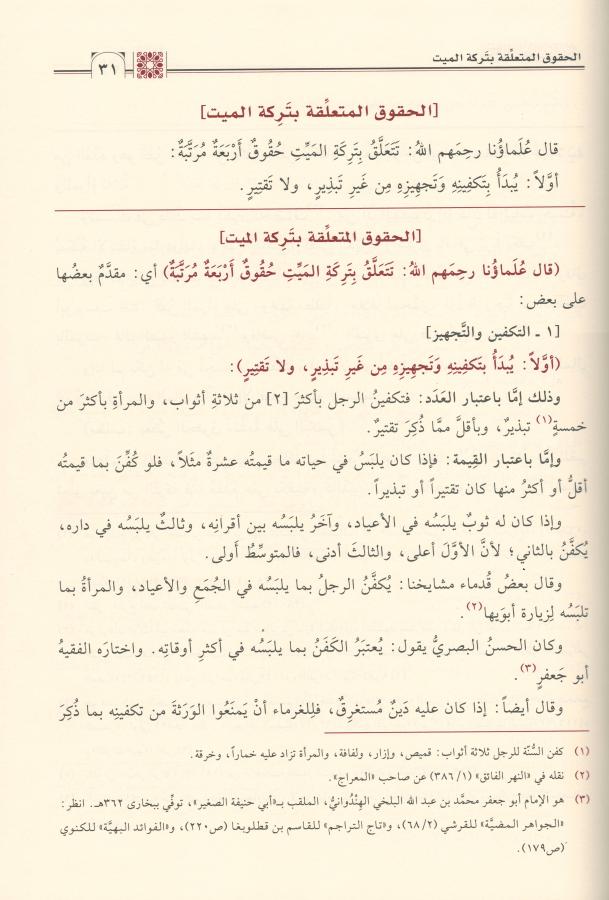 الحقوق المتعلِّقة بتَركة الميت
٣١
[الحقوق المتعلِّقة بتَرِكة الميت]
قال عُلَماؤُنا رحِمَهم اللهُ: تَتَعَلَّقُ بِتَرِكَةِ المَيِّتِ حُقُوقٌ أَرْبَعَةٌ مُرَتَّبَةٌ:
أوَّلاً: يُبدَأُ بِتَكفِينِهِ وَتَجهِيزِهِ مِن غَيرِ تَبذِيرٍ، ولا تَقتِيرٍ.
[الحقوق المتعلِّقة بتَركة الميت]
(قال عُلَماؤُنا رحمَهم اللهُ: تَتَعَلَّقُ بِتَرِكَةِ المَيِّتِ حُقُوقٌ أَرْبَعَةٌ مُرَتَّبَةٌ) أي: مقدَّمٌ بعضُها
على بعض:
[١ ـ التكفين والتَّجهيز]
(أوَّلاً: يُبدَأُ بتَكفِينِهِ وَتَجهِيزِهِ مِن غَيرِ تَبذِيرٍ، ولا تَقتِيرٍ):
وذلك إمَّا باعتبار العَدَد: فتكفينُ الرجل بأكثرَ [٢] من ثلاثةِ أثواب، والمرأةِ بأكثرَ من
خمسةٍ(١) تبذيرٌ، وبأقلَّ ممَّا ذُكِرَ تقتيرٌ.
وإمَّا باعتبار القِيمة: فإذا كان يلبَسُ في حياته ما قيمتُه عشرةٌ مثَلاً، فلو كُفِّنَ بما قيمتُه
أقلُّ أو أكثرُ منها كان تقتيراً أو تبذيراً.
وإذا كان له ثوبٌ يلبَسُه في الأعياد، وآخَرُ يلبَسُه بين أقرانِه، وثالثٌ يلبَسُه في داره،
يُكفَّنُ بالثاني؛ لأنَّ الأوَّلَ أعلى، والثالثَ أدنى، فالمتوسِّطُ أَولى.
وقال بعضُ قُدماء مشايخنا: يُكفَّنُ الرجلُ بما يلبَسُه في الجُمَعِ والأعياد، والمرأةُ بما
تلبَسُه لِزيارة أبوَيها(٢).
وكان الحسنُ البصريُّ يقول: يُعتبَرُ الكَفَنُ بما يلبَسُه في أكثرِ أوقاتِه. واختارَه الفقيهُ
أبو جَعفرٍ(٣).
وقال أيضاً: إذا كان عليه دَينٌ مُستغرِقٌ، فلِلغرماء أنْ يَمنَعُوا الوَرَثةَ من تكفينِه بما ذُكِرَ
(١) كفن السُّنّة للرجل ثلاثة أثواب: قميص، وإزار، ولفافة، والمرأة تزاد عليه خماراً، وخرقة.
(٢) نقله في «النهر الفائق» (١/ ٣٨٦) عن صاحب «المعراج».
(٣) هو الإمام أبو جعفر محمَّد بن عبد الله البلخي الهِنْدُوانيُّ، الملقب بـ«أبي حنيفة الصغير»، توفِّي ببخارى ٣٦٢هـ. انظر:
«الجواهر المضيَّة» للقرشي (٢/ ٦٨)، و«تاج التراجم» للقاسم بن قطلوبغا (ص٢٢٠)، و«الفوائد البهيَّة» للكنوي
(ص١٧٩).